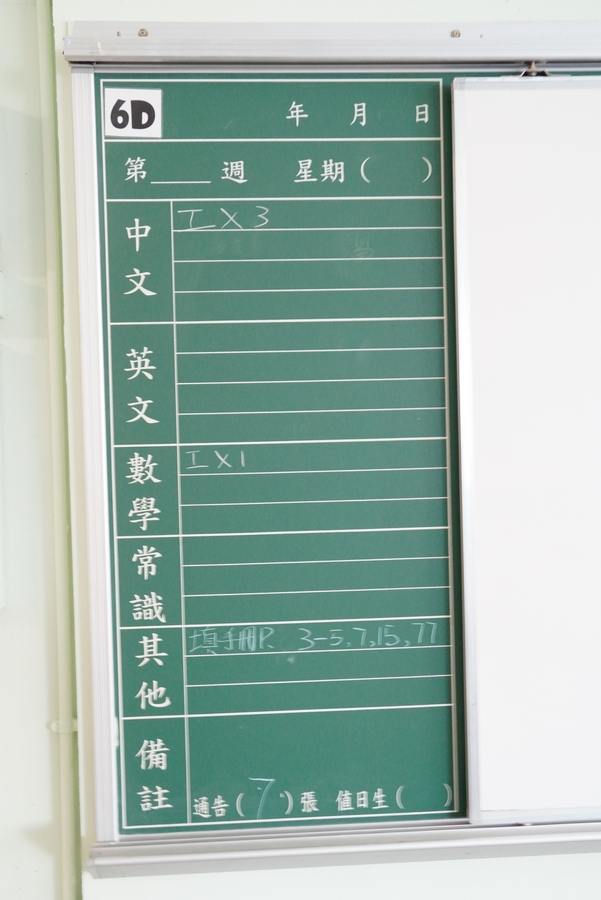 6D 年 月 日
第____週 星期( )
中文
工X3
英文
數學
工X1
常識
其他
填手冊P. 3-5,7,15,77
備註
通告(7)張 值日生( )